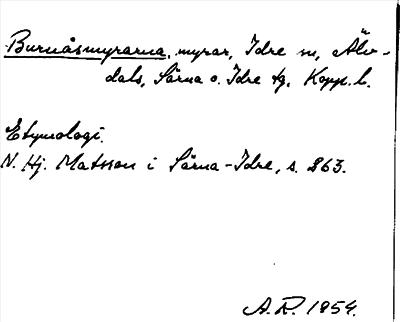 Burnåsmyrarna, myrar, Idre sn, Älv-
dals, Särna o. Idre tg, Kopp. l.
Etymologi.
N. Hj. Matsson i Särna-Idre, s. 263.
A.R. 1954.